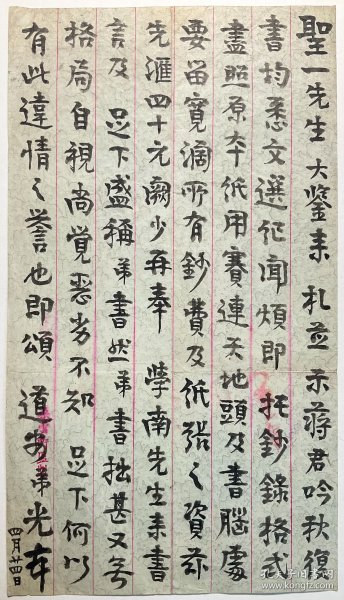 聖一先生大鑒來札並示蔣君吟秋復
書均悉文選紀聞煩即托鈔錄格式
盡照原本紙用賽連天地頭及書腦處
要留寬濶所有鈔費及紙張之資茲
先滙四十元闕少再奉 學南先生來書
言及 足下盛稱弟書然弟書拙甚又無
格局自視尚覺惡劣不知 足下何以
有此違情之譽也即頌 道安弟光
四月廿四日